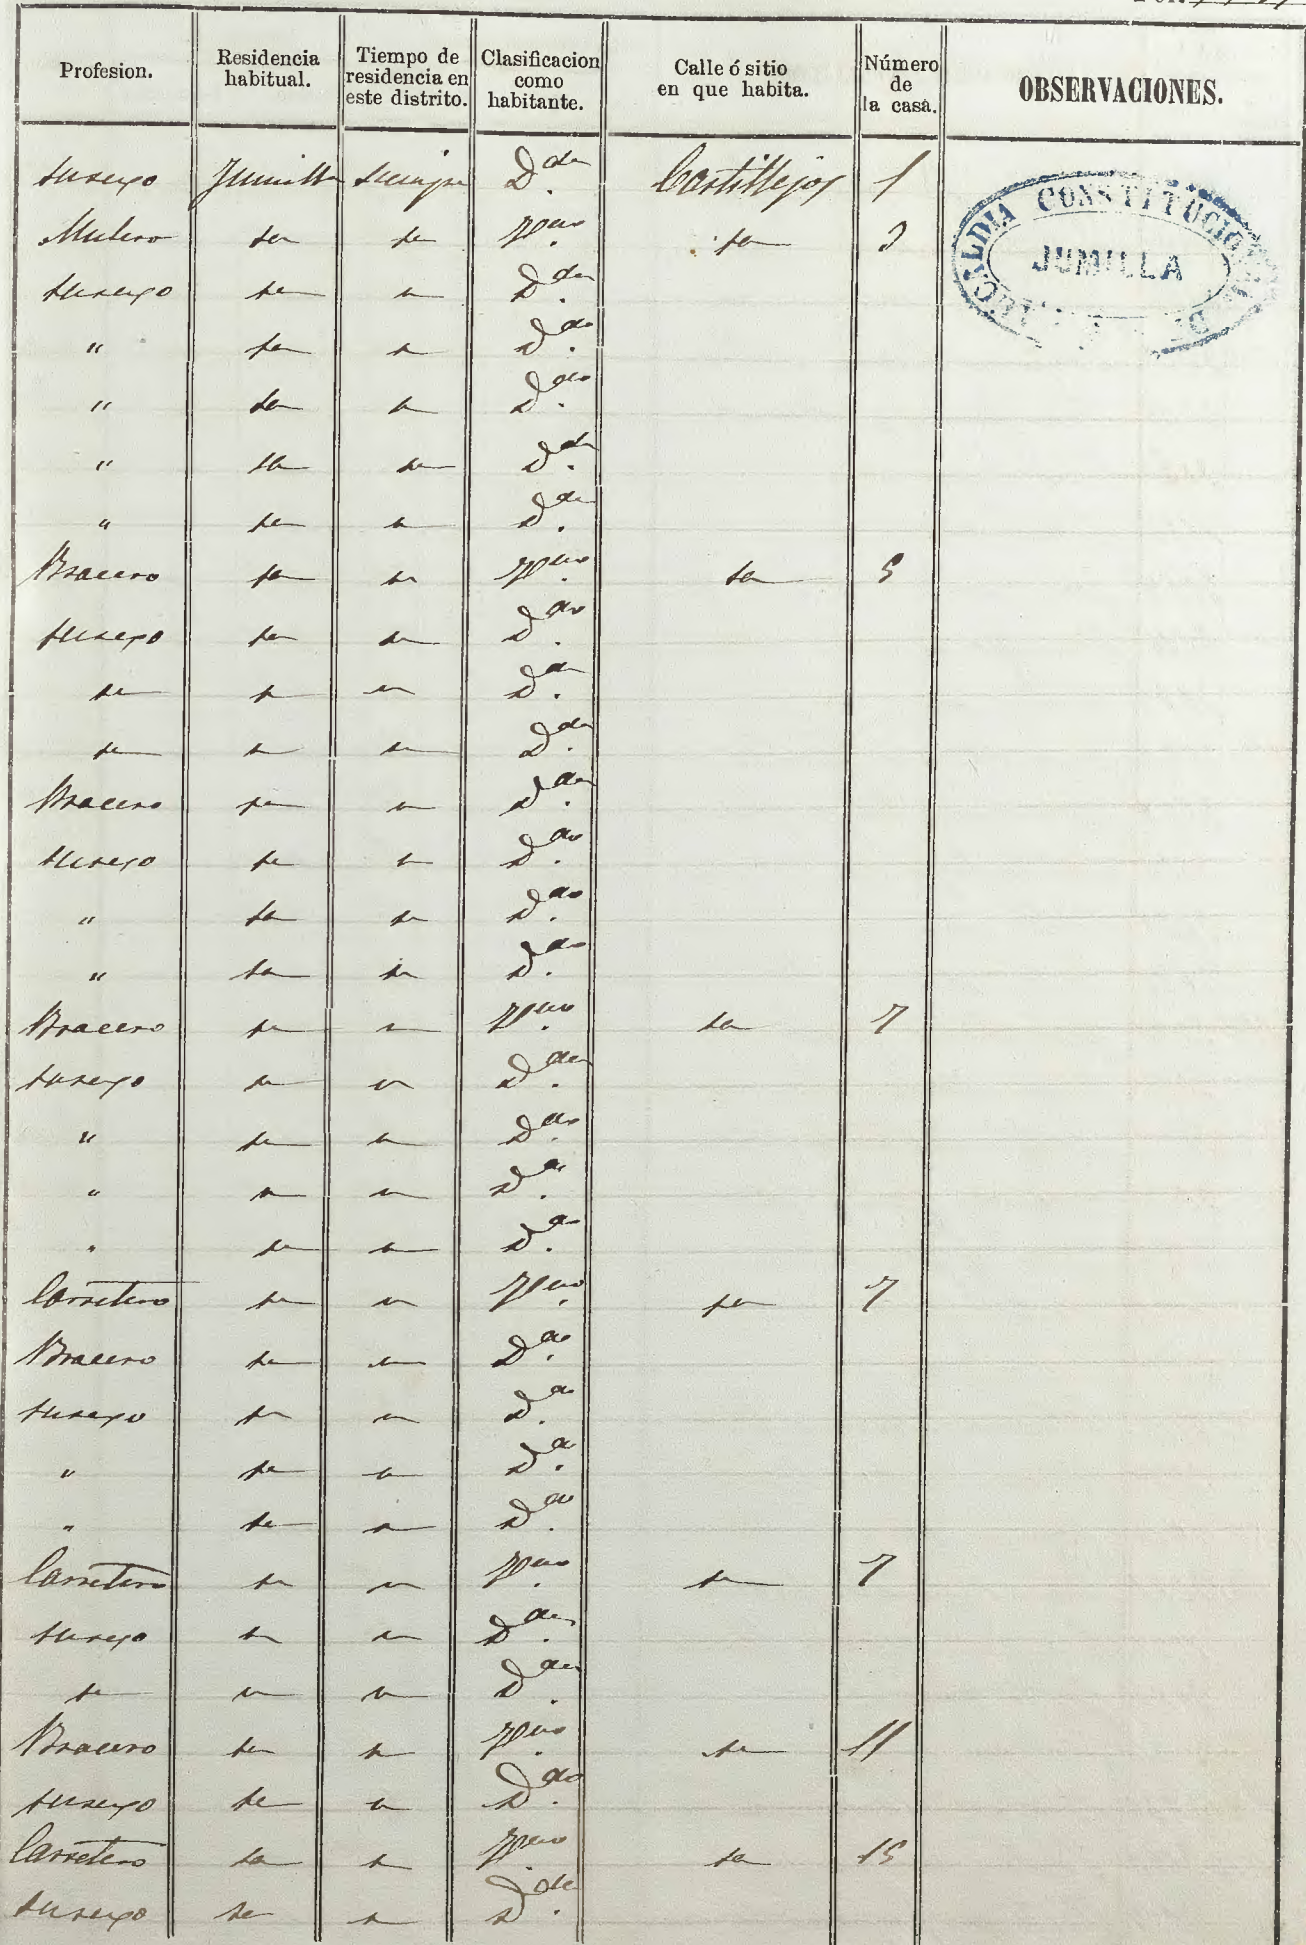 Profesion. Residencia habitual. Tiempo de residencia en este distrito. Clasificacion como habitante. Calle ó sitio en que habita. Número de la casa. OBSERVACIONES.
su sexo Jumilla siempre D.da Castillejos 1
ALCALDIA CONSTITUCIONAL DE JUMILLA
Mulero id id V.no id 3
su sexo id id D.da
" id id D.do
" id id D.do
" id id D.da
" id id D.da
Bracero id id V.no id 5
su sexo id id D.da
id id id D.da
id id id D.da
Bracero id id D.do
su sexo id id D.do
" id id D.do
" id id D.do
Bracero id id V.no id 7
su sexo id id D.da
" id id D.do
" id id D.a
" id id D.a
Carretero id id V.no id 7
Bracero id id D.do
su sexo id id D.a
" id id D.a
" id id D.do
Carretero id id V.no id 7
su sexo id id D.da
id id id D.da
Bracero id id V.no id 11
su sexo id id D.da
Carretero id id V.no id 15
su sexo id id D.da